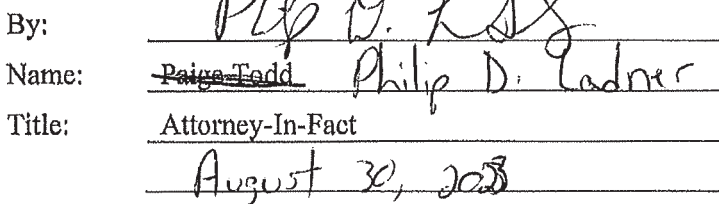 By:
Name: Paige Todd Philip D. Ladner
Title: Attorney-In-Fact
August 30,